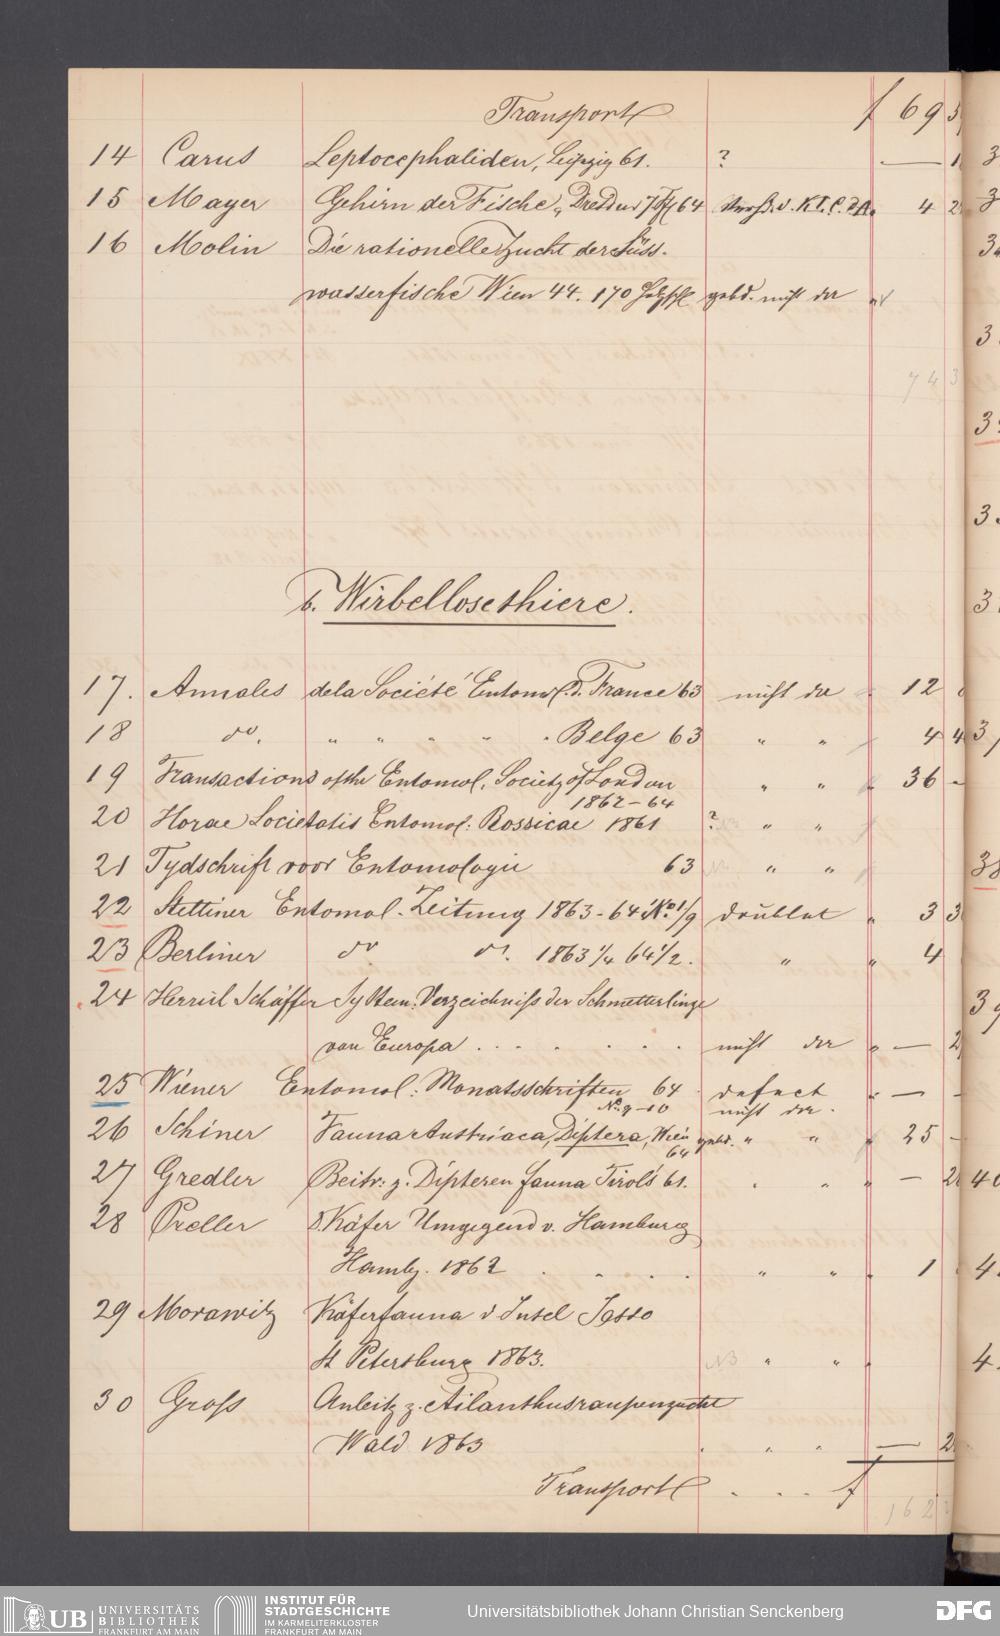 Transport f 69
14 Carus Leptocephaliden, Leipzig 61. ? —
15 Mayer Gehirn der Fische, Dresden 64 4
16 Molin Die rationelle Zucht der Süss-
wasserfische Wien 44. 170 gebd. nicht da "
743
b. Wirbellosethiere.
17. Annales de la Société Entomol. d. France 63 nicht da " 12
18 do. " " " " " Belge 63 " " 4 4
19 Transactions of the Entomol. Society of London " " 36 -
1862-64
20 Horae Societatis Entomol: Rossicae 1861 ? " "
21 Tydschrift voor Entomologie 63 " "
22 Stettiner Entomol. Zeitung 1863-64 No 1/9 doublet " 3 3
23 Berliner do do. 1863 1/4 64 1/2. " " 4
24 Herrich Schäffer System. Verzeichniss der Schmetterlinge
von Europa . . . . . . nicht da " — 2
25 Wiener Entomol: Monatsschriften 64 defect " — -
No 9-10 nicht da.
26 Schiner Fauna Austriaca, Diptera, Wien gebd. " " 25 -
64
27 Gredler Beitr: z. Dipteren fauna Tirols 61. " " " — 2
28 Preller D. Käfer Umgegend v. Hamburg
Hambg. 1862 . . . . " " " 1
29 Morawitz Käferfauna d Insel Jesso
St Petersburg 1863. NB " " "
30 Gross Anleitg z. Ailanthusraupenzucht
Wald 1863 . " " — 2
Transport . . . . f
162
UB UNIVERSITÄTS
BIBLIOTHEK
FRANKFURT AM MAIN
INSTITUT FÜR
STADTGESCHICHTE
IM KARMELITERKLOSTER
FRANKFURT AM MAIN
Universitätsbibliothek Johann Christian Senckenberg
DFG